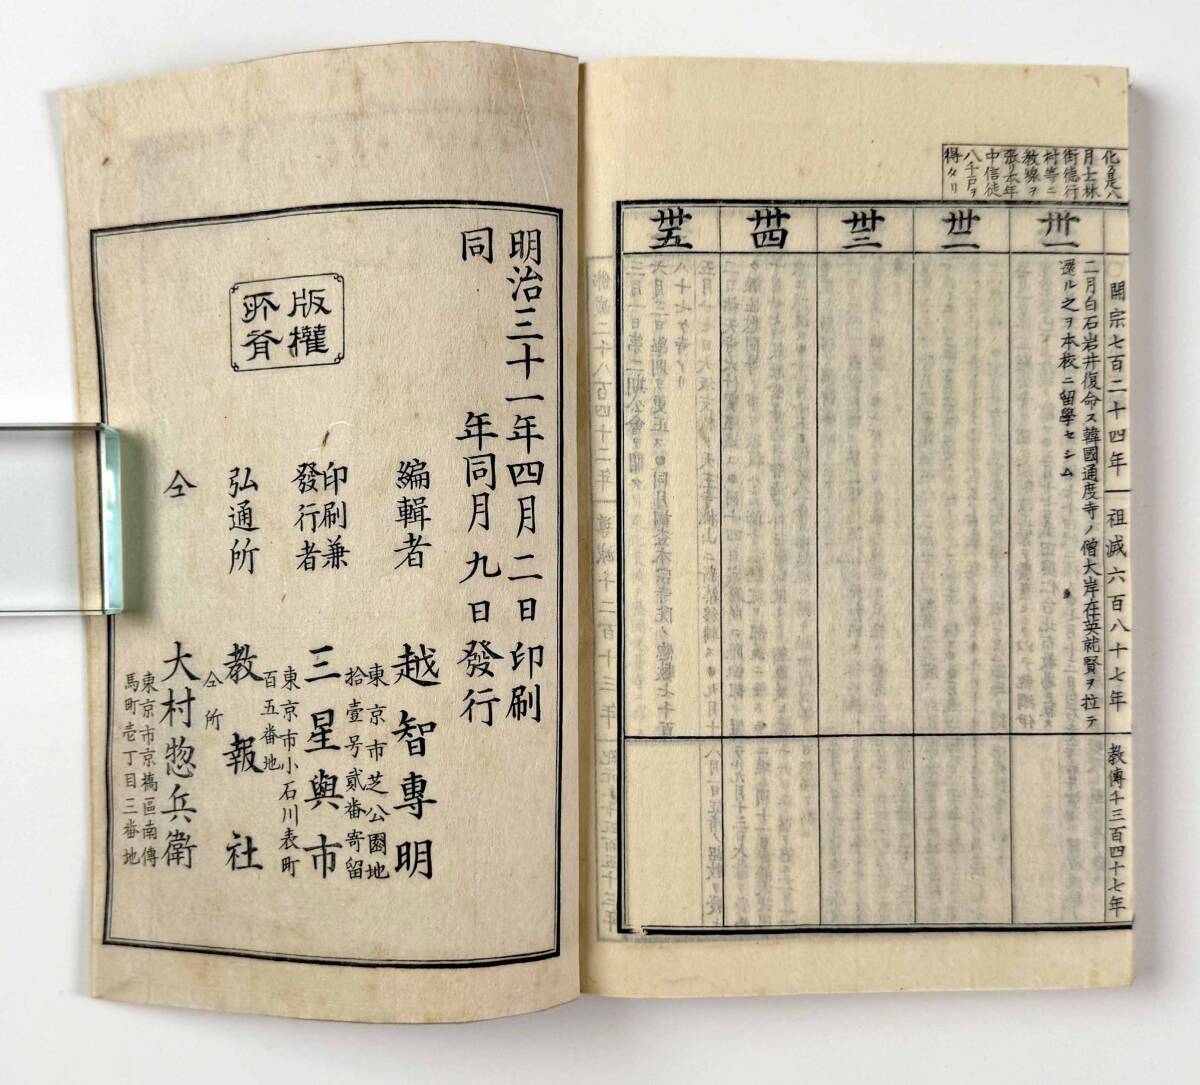 化ス是八
月士林
街德行
村等ニ
教線ヲ
張リ本年
中信徒
八千戸ヲ
得タリ
開宗七百二十四年
祖滅六百八十七年
教傳千三百四十七年
卅一
二月白石岩井復命ス韓國通度寺ノ僧大岸在英就賢ヲ拉テ
還ル之ヲ本校ニ留學セシム
卅二
卅三
卅四
卅五
明治三十一年四月二日印刷
同年同月九日發行
版權
所有
編輯者
越智專明
東京市芝公園地
拾壹号貳番寄留
印刷兼
發行者
三星與市
東京市小石川表町
百五番地
弘通所
教報社
仝所
仝
大村惣兵衛
東京市京橋區南傳
馬町壱丁目三番地